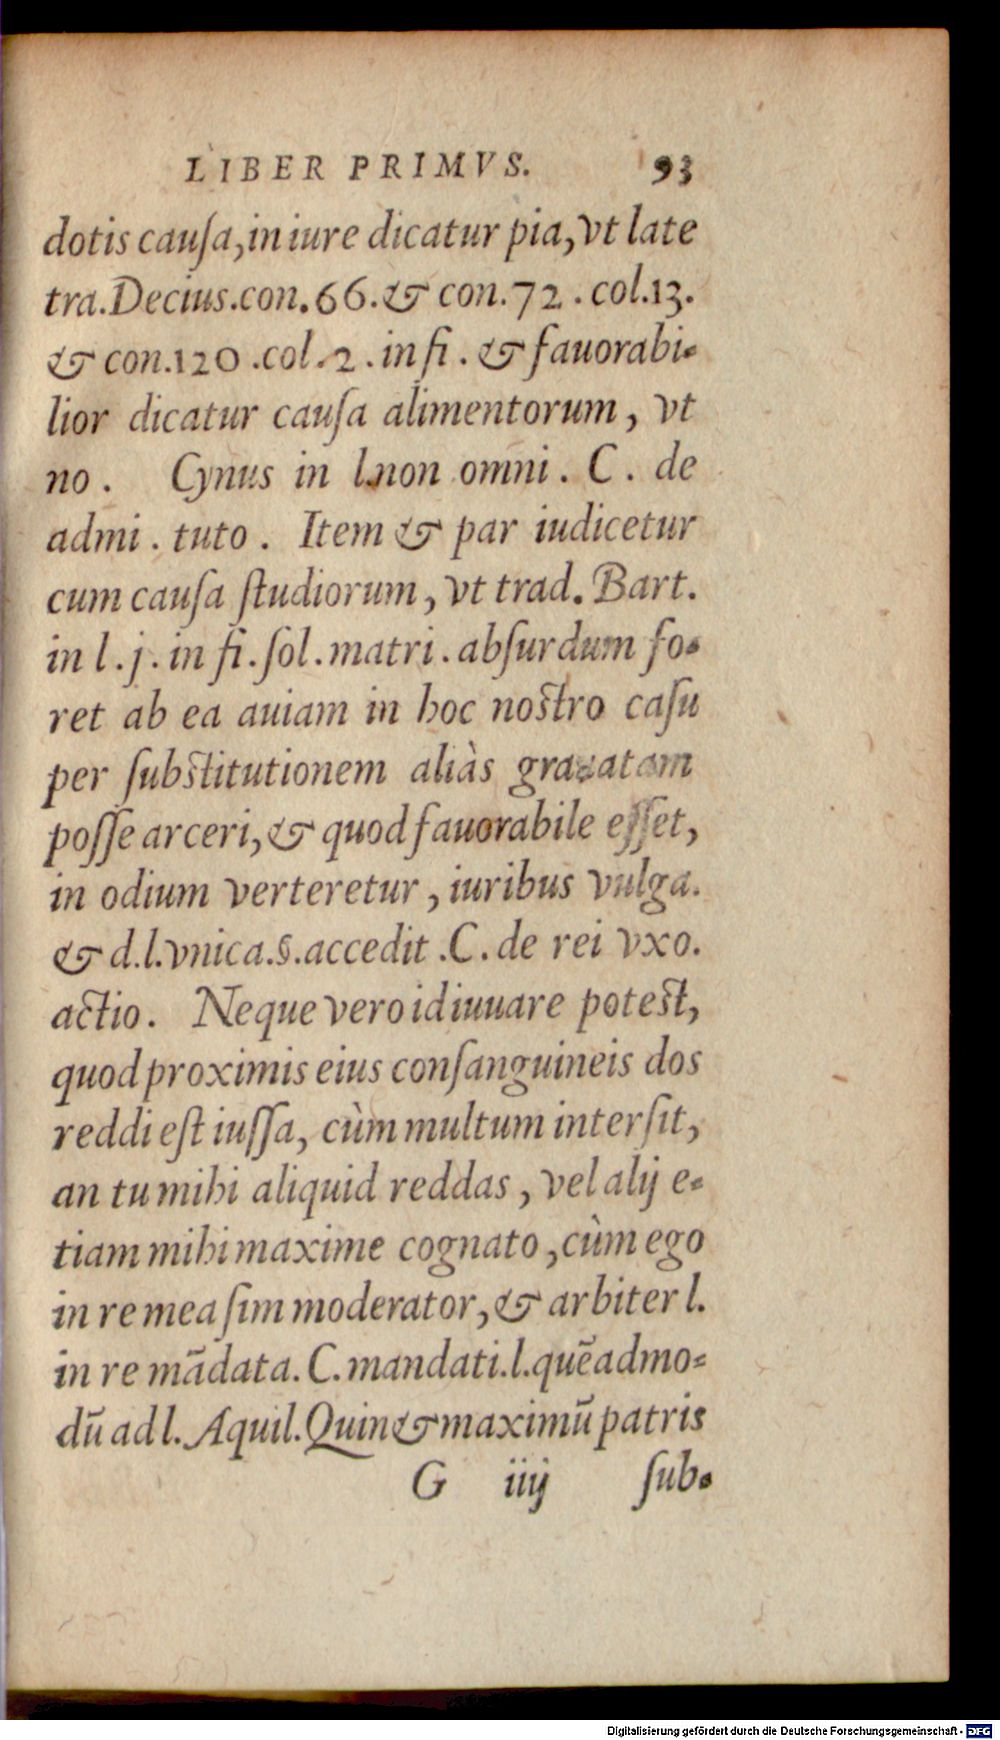 LIBER PRIMVS. 93
dotis cauſa, in iure dicatur pia, vt late
tra. Decius. con. 66. & con. 72. col. 13.
& con. 120. col. 2. in fi. & fauorabi-
lior dicatur cauſa alimentorum, vt
no. Cynus in l. non omni. C. de
admi. tuto. Item & par iudicetur
cum cauſa ſtudiorum, vt trad. Bart.
in l. j. in fi. ſol. matri. abſurdum fo-
ret ab ea auiam in hoc noſtro caſu
per ſubſtitutionem aliàs grauatam
poſſe arceri, & quod fauorabile eſſet,
in odium verteretur, iuribus vulga.
& d. l. vnica. §. accedit. C. de rei vxo.
actio. Neque vero id iuuare poteſt,
quod proximis eius conſanguineis dos
reddi eſt iuſſa, cùm multum interſit,
an tu mihi aliquid reddas, vel alij e-
tiam mihi maxime cognato, cùm ego
in re mea ſim moderator, & arbiter l.
in re mãdata. C. mandati. l. quẽadmo-
dũ ad l. Aquil. Quin & maximũ patris
G iiij ſub-
Digitalisierung gefördert durch die Deutsche Forschungsgemeinschaft - DFG